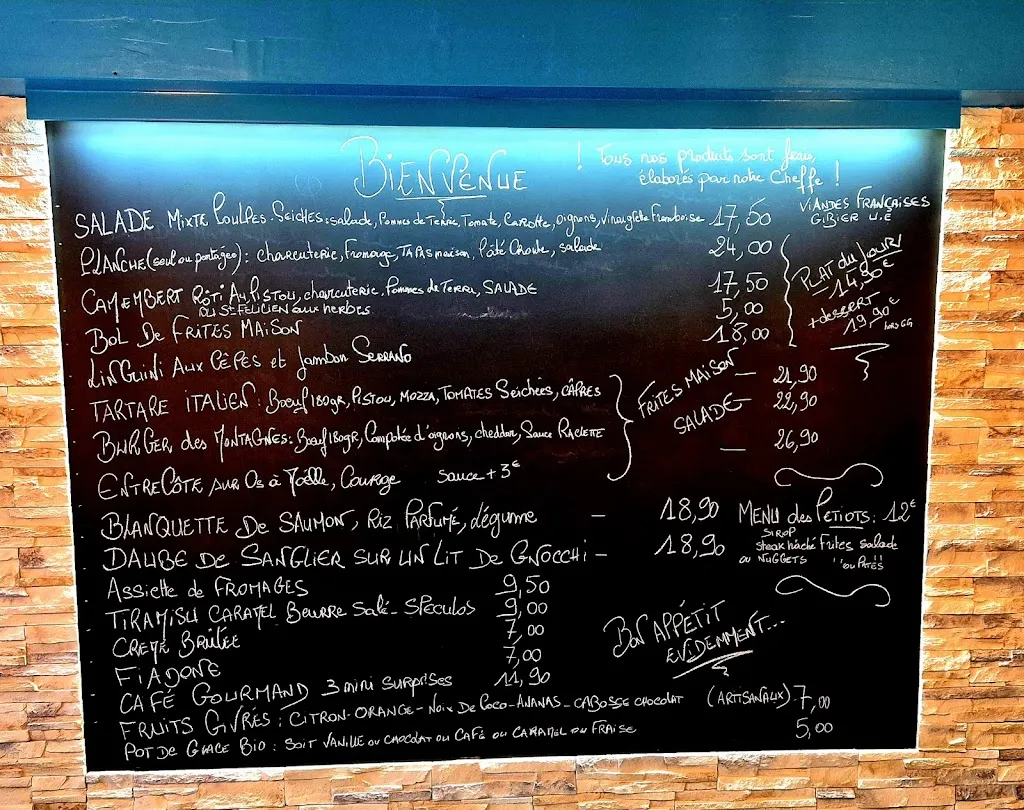 BIENVENUE
! Tous nos produits sont frais,
élaborés par notre Cheffe !
VIANDES FRANÇAISES
GIBIER U.E
SALADE MIXTE POULPES-SEICHES: salade, Pommes de Terre, Tomate, Carotte, oignons, vinaigrette Framboise 17,50
PLANCHE (seul ou partagée): charcuterie, Fromage, TAPAS maison, Pâté Croute, salade 24,00
CAMEMBERT RÔTI AU PISTOU, charcuterie, Pommes de Terre, SALADE 17,50
OU ST FELICIEN aux herbes
BOL DE FRITES MAISON 5,00
LINGUINI AUX CÊPES et Jambon SERRANO 18,00
PLAT du JOUR
14,90€
+ dessert
19,90€
HORS CG
TARTARE ITALIEN: Bœuf 180gr, PISTOU, MOZZA, TOMATES SÉICHÉES, CÂPRES
BURGER des MONTAGNES: Bœuf 180gr, Compotée d'oignons, cheddar, Sauce RACLETTE
ENTRECÔTE, sur Os à Moëlle, Courge sauce +3€
FRITES MAISON
SALADE
— 21,90
— 22,90
— 26,90
BLANQUETTE DE SAUMON, RIZ PARFUMÉ, légume — 18,90
DAUBE DE SANGLIER SUR UN LIT DE GNOCCHI — 18,90
MENU des PETIOTS: 12€
SIROP
steak haché Frites salade
ou NUGGETS " ou PÂTES
ASSIETTE de FROMAGES 9,50
TIRAMISU CARAMEL BEURRE Salé - SPÉCULOS 9,00
CREME BRÛLÉE 7,00
FIADONE 7,00
CAFÉ GOURMAND 3 mini SURPRISES 11,90
BON APPÉTIT
EVIDEMMENT...
FRUITS GIVRÉS : CITRON-ORANGE-NOIX DE COCO-ANANAS-CABOSSE CHOCOLAT (ARTISANAUX) 7,00
POT DE GLACE BIO : SOIT VANILLE ou CHOCOLAT OU CAFÉ OU CARAMEL OU FRAISE 5,00